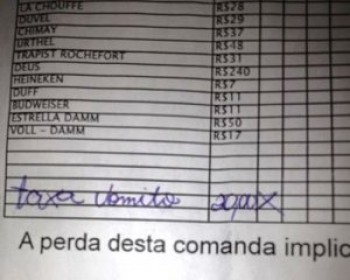 LA CHOUFFE R$28
DUVEL R$29
CHIMAY R$37
URTHEL R$48
TRAPIST ROCHEFORT R$31
DEUS R$240
HEINEKEN R$7
DUFF R$11
BUDWEISER R$11
ESTRELLA DAMM R$50
VOLL - DAMM R$17
taxa vomito X
A perda desta comanda implic